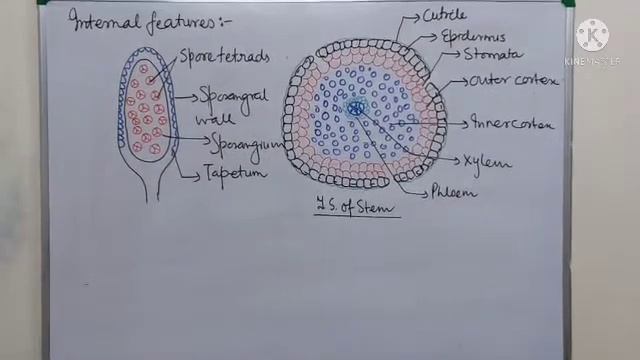 Internal features:-
Spore tetrads
Sporangial
wall
Sporangium
Tapetum
Cuticle
Epidermis
Stomata
Outer cortex
Inner cortex
Xylem
Phloem
T.S. of Stem
K
KINEMASTER